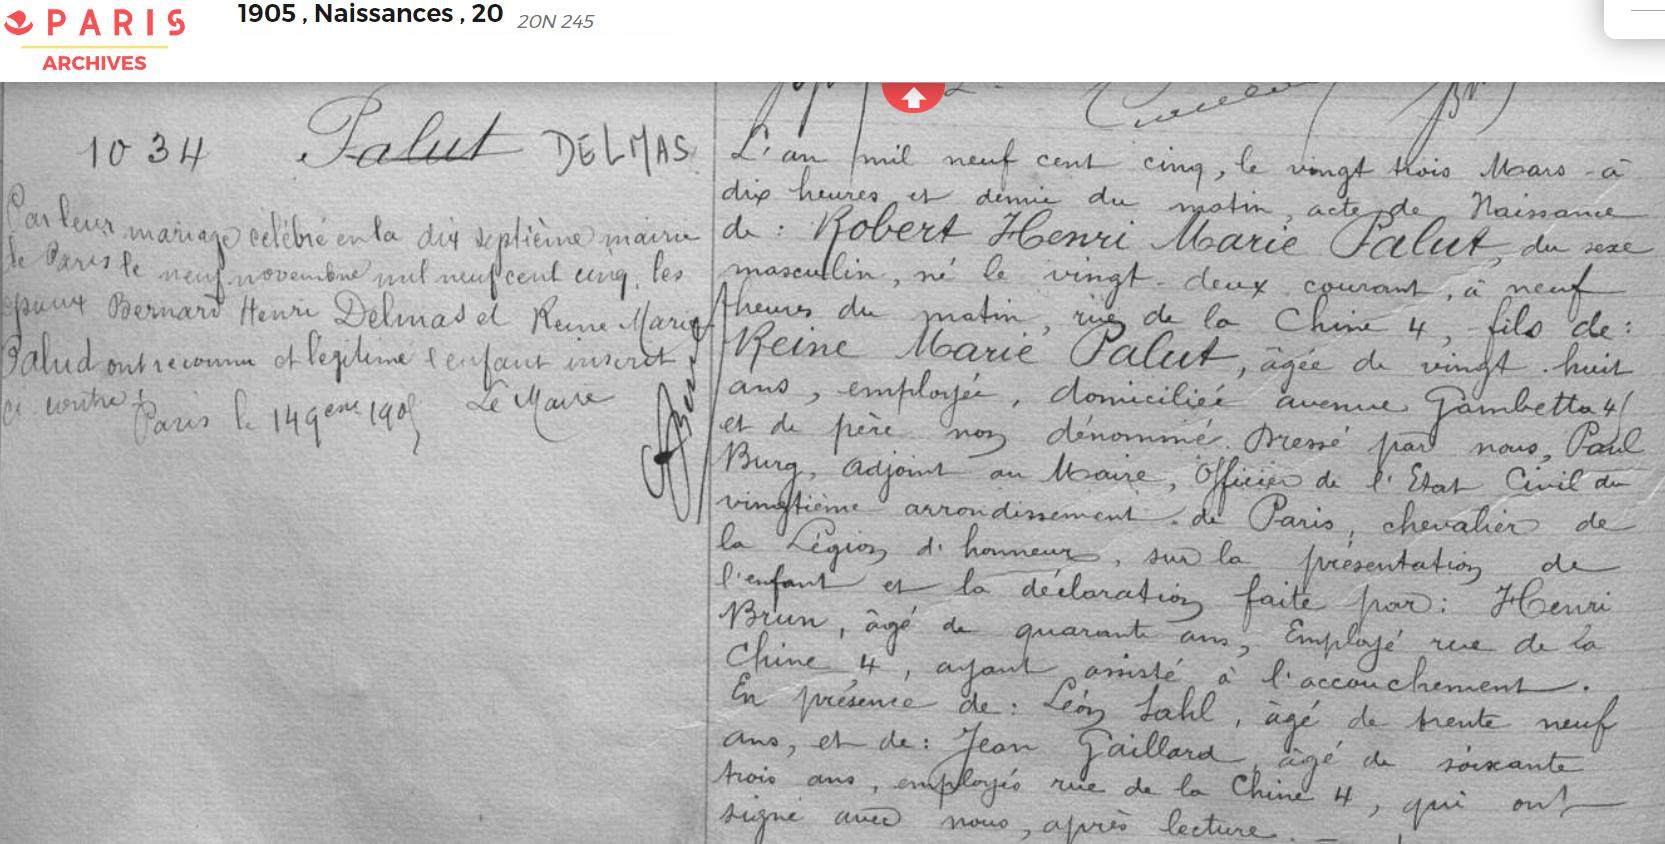 PARIS
ARCHIVES
1905 , Naissances , 20 20N 245
1034 Palut DELMAS
Par leur mariage célébré en la dix septième mairie
de Paris le neuf novembre mil neuf cent cinq, les
époux Bernard Henri Delmas et Reine Marie
Palud ont reconnu et légitimé l'enfant inscrit
ci contre.
Paris le 14 9bre 1905 Le Maire
L'an mil neuf cent cinq, le vingt trois Mars à
dix heures et demie du matin, acte de Naissance
de : Robert Henri Marie Palut, du sexe
masculin, né le vingt-deux courant, à neuf
heures du matin, rue de la Chine 4, fils de :
Reine Marie Palut, âgée de vingt huit
ans, employée, domiciliée avenue Gambetta 4
et de père non dénommé. Dressé par nous, Paul
Burg, adjoint au Maire, officier de l'Etat Civil du
vingtième arrondissement de Paris, chevalier de
la Légion d'honneur, sur la présentation de
l'enfant et la déclaration faite par : Henri
Brun, âgé de quarante ans, Employé rue de la
Chine 4, ayant assisté à l'accouchement.
En présence de : Léon Sahl, âgé de trente neuf
ans, et de : Jean Gaillard, âgé de soixante
trois ans, employés rue de la Chine 4, qui ont
signé avec nous, après lecture. —